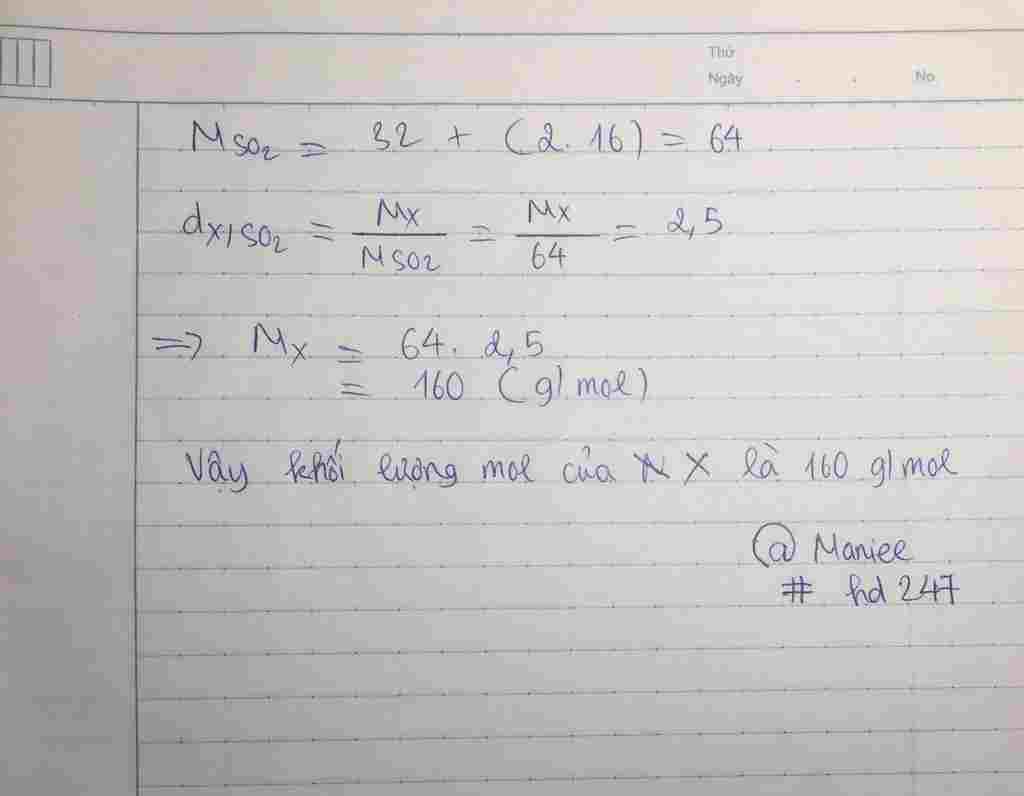 Thứ
Ngày . . No
M SO2 = 32 + (2.16) = 64
d X/SO2 = Mx / M SO2 = Mx / 64 = 2,5
=> Mx = 64. 2,5
= 160 (g/mol)
Vậy khối lượng mol của X là 160 g/mol
@ Maniee
# hd 247